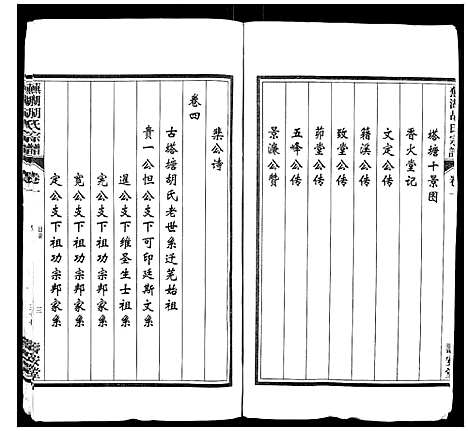 塔塘十景图
香火堂记
文定公传
籍溪公传
致堂公传
茆堂公传
五峰公传
景濂公赞
集公诗
卷四
古塔塘胡氏老世系迁芜始祖
贵一公怛公支下可印廷斯文系
暹公支下维圣生士祖系
宪公支下祖功宗邦家系
宽公支下祖功宗邦家系
定公支下祖功宗邦家系
蕪湖胡氏宗譜